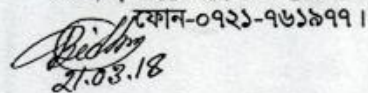 ফোন-০৭২১-৭৬১৯৭৭।
21.03.18